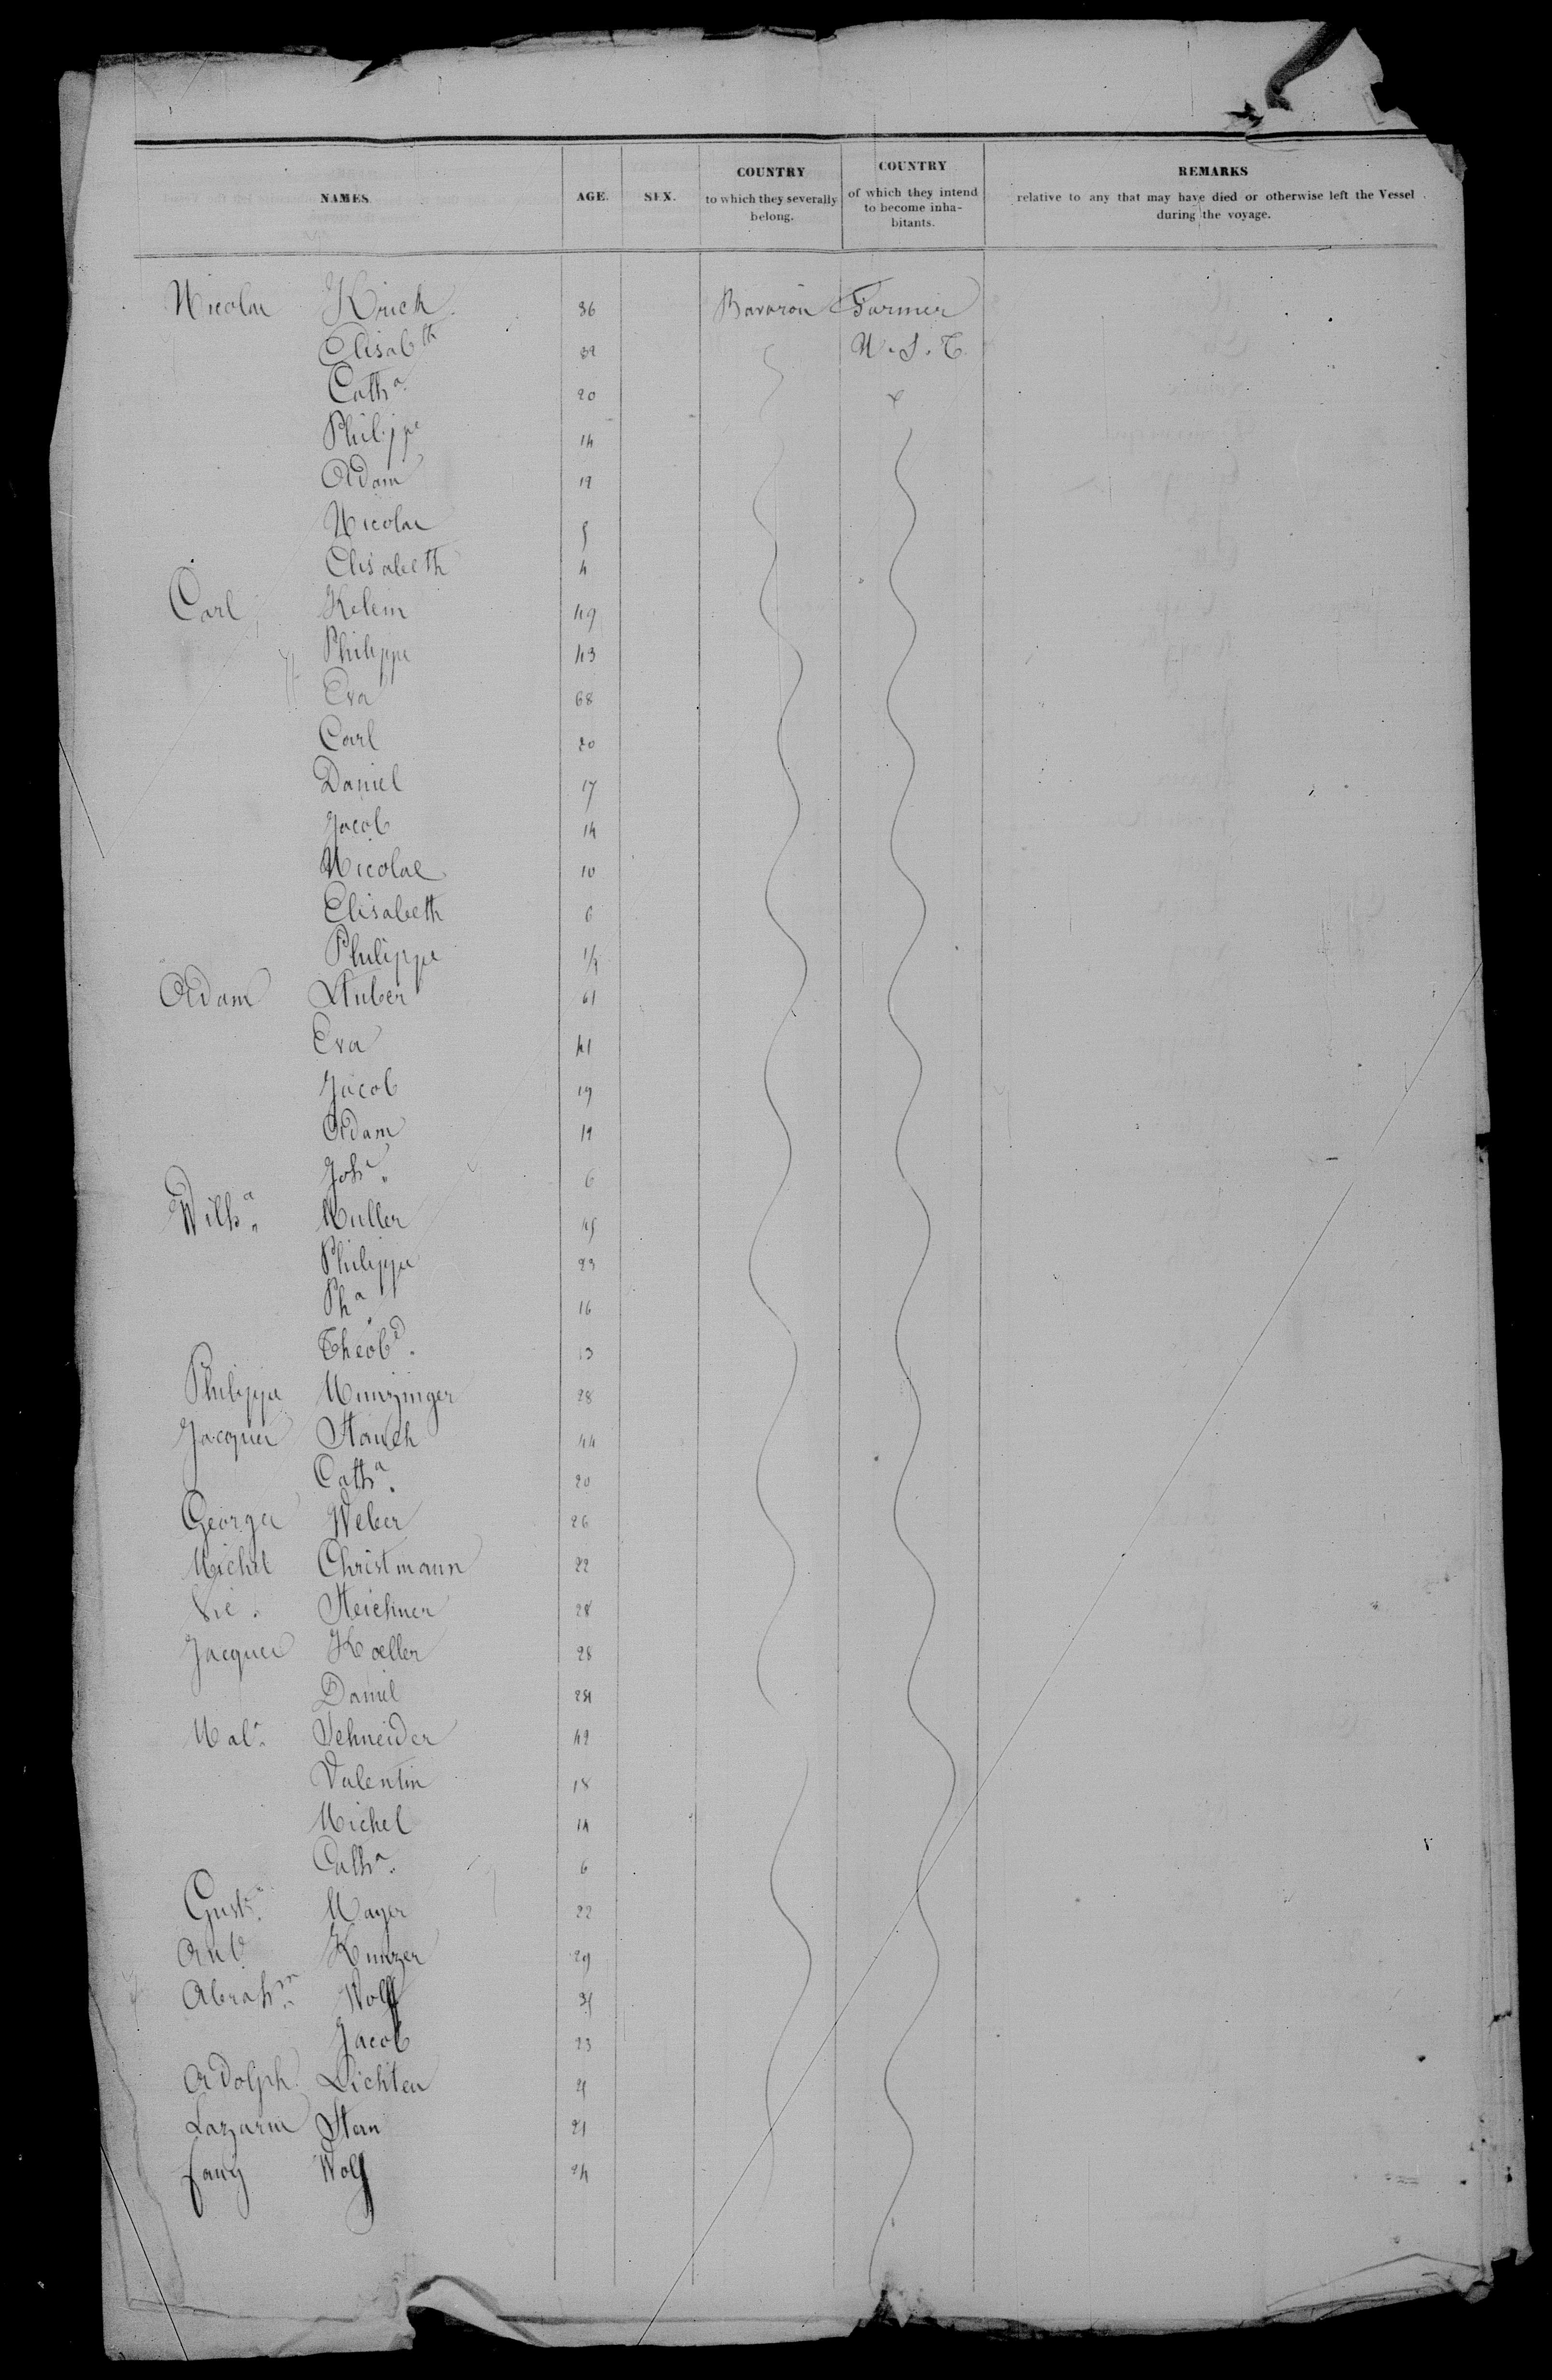 NAMES AGE. SEX. COUNTRY to which they severally belong. COUNTRY of which they intend to become inha-bitants. REMARKS relative to any that may have died or otherwise left the Vessel during the voyage.
Nicolae Krick 36 Bavaron Farmer
Elisabth 39 U. S. T.
Catha 20
Philippe 14
Adam 12
Nicolae 5
Elisabeth 4
Carl Kelem 49
Philippe 43
Eva 68
Carl 20
Daniel 17
Jacob 14
Nicolae 10
Elisabeth 6
Philippe
Adam Stuber 61
Eva 41
Jacob 19
Adam 12
Joha 6
Wilha Muller 45
Philippe 23
Pha 16
Theobd 13
Philippe Munzinger 28
Jacques Stauch 44
Catha 20
George Weber 26
Michel Christmann 22
Steichner 28
Jacques Koeller 28
Daniel 24
Schneider 42
Valentin 18
Michel 14
Catha 6
Gust. Mayer 22
Ant Kunzer 29
Abrahm Wolff 35
Jacob 23
Adolph Lichten 25
Lazarus Stern 21
Fany Wolf 24